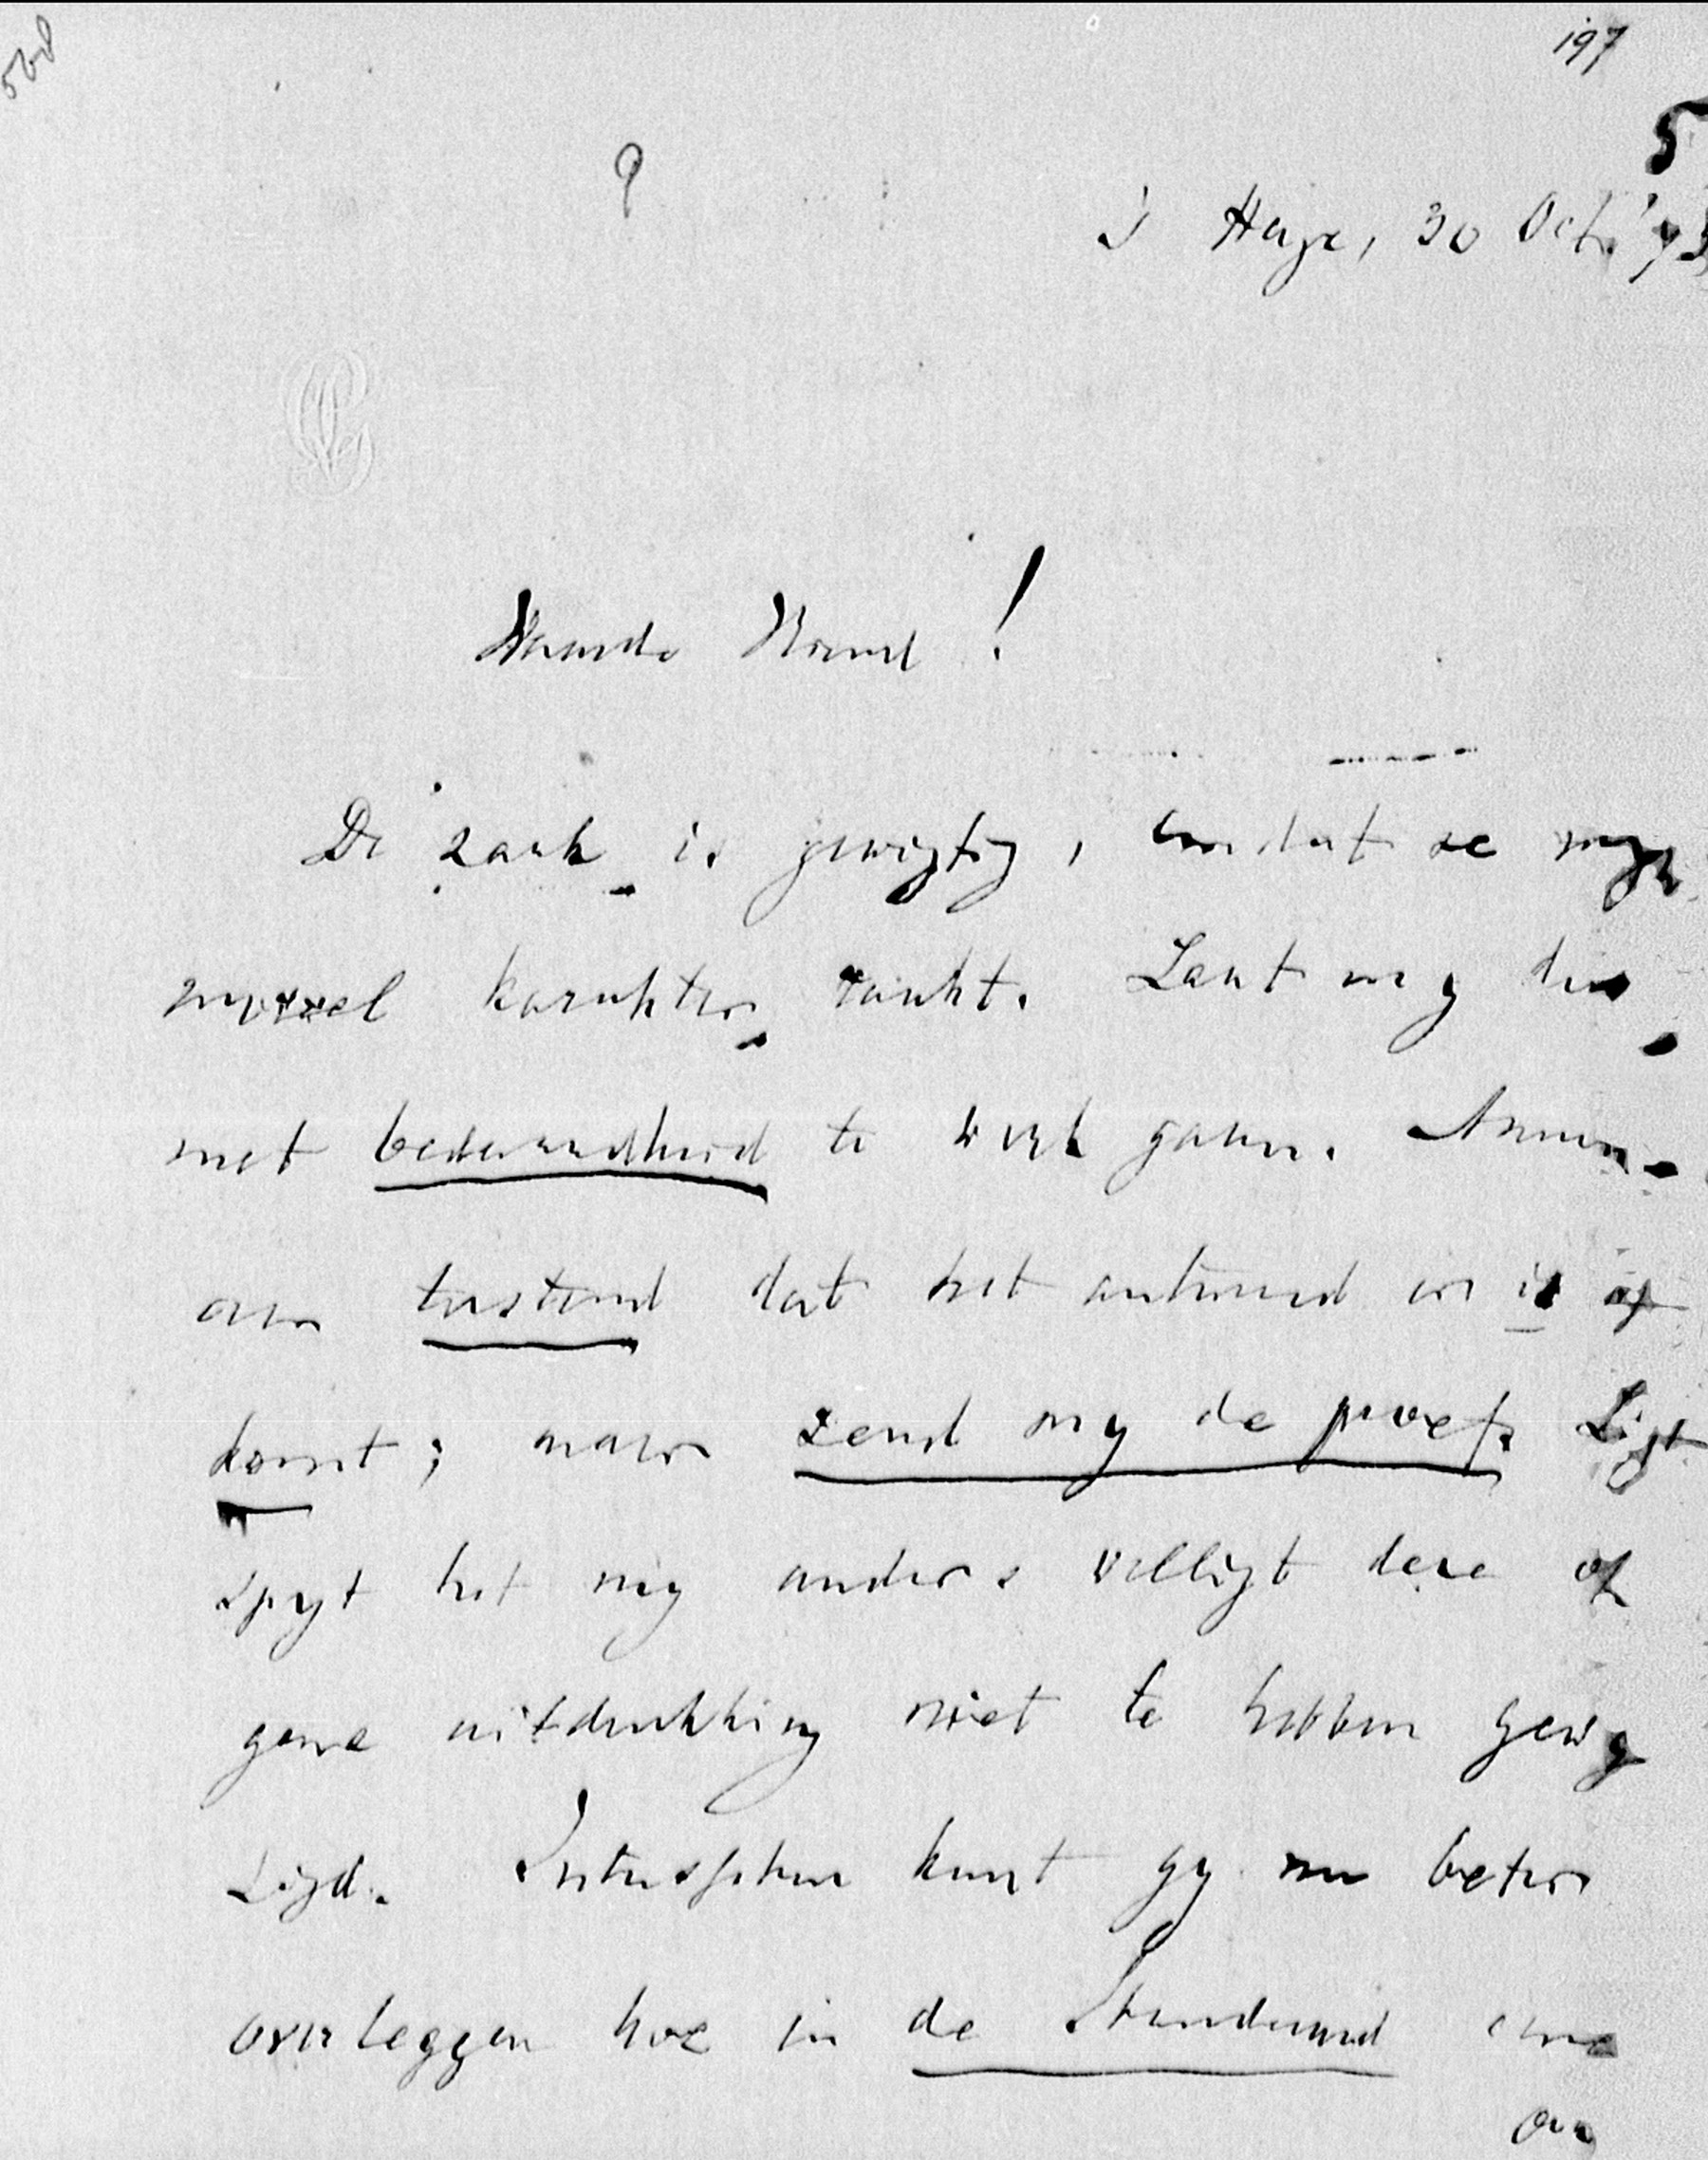 568
197
5
9
's Hage, 30 Oct. '73
Waarde Vriend!
De zaak is gewigtig, omdat ze myn
moreel karakter raakt. Laat my dus
met bedaardheid te werk gaan. Aan
toestand dat het antwoord er is of
komt; maar zend my de proef. Ligt
spyt het my anders welligt deze of
gene uitdrukking niet te hebben gewy
zigd. Intusschen kunt gy nu beter
overleggen hoe in de Standaard eene